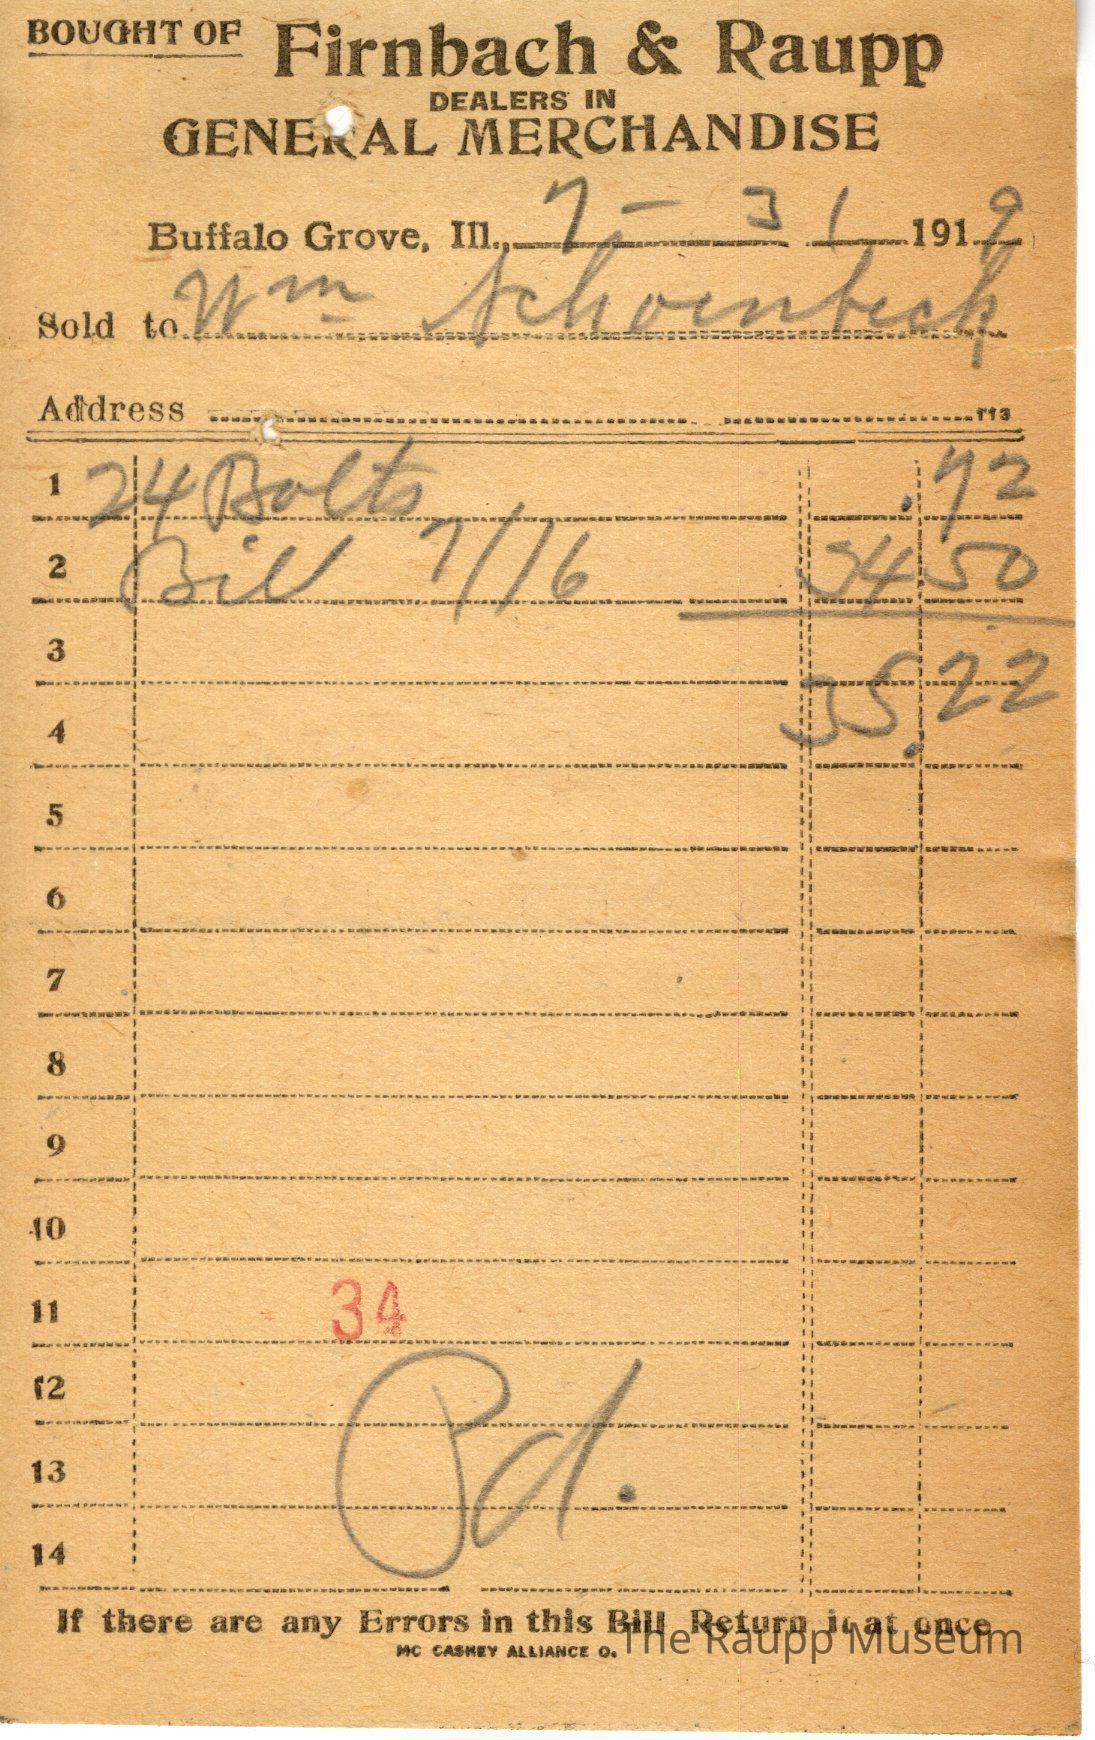 BOUGHT OF Firnbach & Raupp
DEALERS IN
GENERAL MERCHANDISE
Buffalo Grove, Ill., 7 - 31 1919
Sold to Wm Schoenbeck
Address 113
1 24 Bolts .72
2 Bill 7/16 34 50
3 35.22
4
5
6
7
8
9
10
11 34
12
13 Pd.
14
If there are any Errors in this Bill Return it at once
MC CASKEY ALLIANCE O.
The Raupp Museum